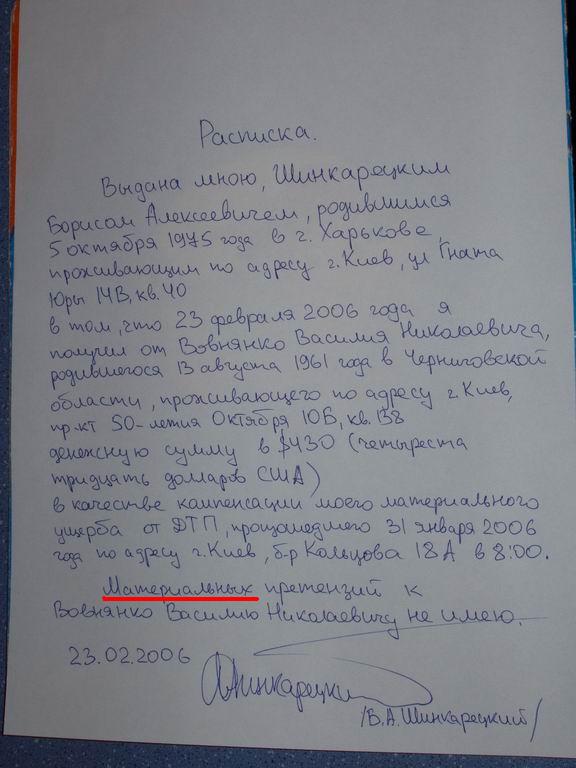 Расписка.
Выдана мною, Шинкарецким
Борисом Алексеевичем, родившимся
5 октября 1975 года в г. Харькове,
проживающим по адресу г. Киев, ул Гната
Юры 14В, кв. 40
в том, что 23 февраля 2006 года я
получил от Вовнянко Василия Николаевича,
родившегося 13 августа 1961 года в Черниговской
области, проживающего по адресу г. Киев,
пр-кт 50-летия Октября 10Б, кв. 138
денежную сумму в $430 (четыреста
тридцать долларов США)
в качестве компенсации моего материального
ущерба от ДТП, прошедшего 31 января 2006
года по адресу г. Киев, б-р Кольцова 18А в 8:00.
Материальных претензий к
Вовнянко Василию Николаевичу не имею.
23.02.2006
Шинкарецкий
/В.А. Шинкарецкий/